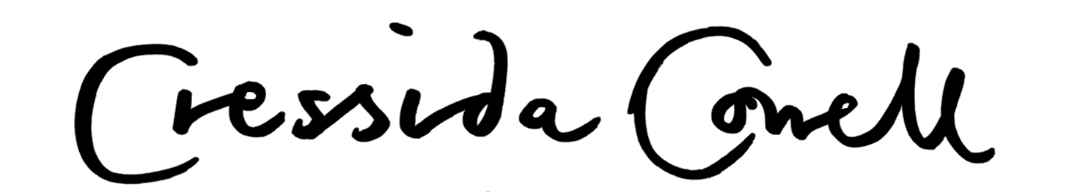 Cressida Cowell